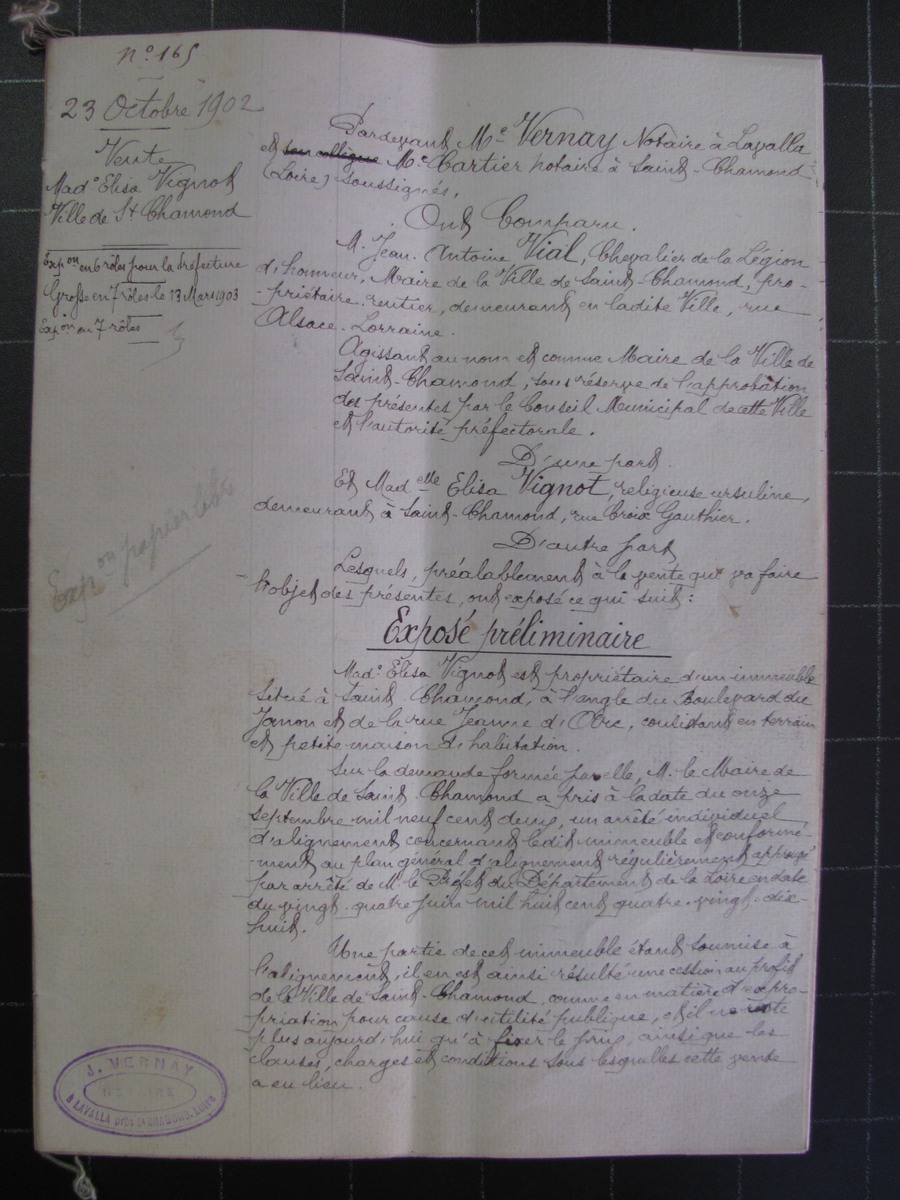 N° 165
23 Octobre 1902
Vente
Made Elisa Vignot
Ville de St Chamond
Expon en 6 rôles pour la préfecture
Grosse en 7 rôles le 13 Mars 1903
Expon en 7 rôles
Expon papier libre
Pardevant Me Vernay Notaire à Lavalla
et son collègue Me Cartier notaire à Saint-Chamond
(Loire) soussignés,
Ont Comparu.
M. Jean-Antoine Vial, Chevalier de la Légion
d'honneur, Maire de la Ville de Saint-Chamond, pro-
-priétaire rentier, demeurant en ladite Ville, rue
Alsace-Lorraine.
Agissant au nom et comme Maire de la Ville de
Saint-Chamond, sous réserve de l'approbation
des présentes par le Conseil Municipal de cette Ville
et l'autorité préfectorale.
D'une part.
Et Madelle Elisa Vignot, religieuse ursuline,
demeurant à Saint-Chamond, rue Croix Gauthier.
D'autre part
Lesquels, préalablement à la vente qui va faire
l'objet des présentes, ont exposé ce qui suit :
Exposé préliminaire
Made Elisa Vignot est propriétaire d'un immeuble
situé à Saint Chamond, à l'angle du Boulevard du
Janon et de la rue Jeanne d'Arc, consistant en terrain
et petite maison d'habitation.
Sur la demande formée par elle, M. le Maire de
la Ville de Saint-Chamond a pris à la date du onze
septembre mil neuf cent deux, un arrêté individuel
d'alignement concernant ledit immeuble et conformé-
-ment au plan général d'alignement régulièrement approuvé
par arrêté de M. le Préfet du Département de la Loire en date
du vingt-quatre juin mil huit cent quatre-vingt-dix-
huit.
Une partie de cet immeuble étant soumise à
l'alignement, il en est ainsi résulté une cession au profit
de la Ville de Saint-Chamond comme en matière d'expro-
priation pour cause d'utilité publique, et il ne reste
plus aujourd'hui qu'à fixer le prix, ainsi que les
clauses, charges et conditions sous lesquelles cette vente
a eu lieu.
J. VERNAY
NOTAIRE
à LAVALLA près St CHAMOND, Loire